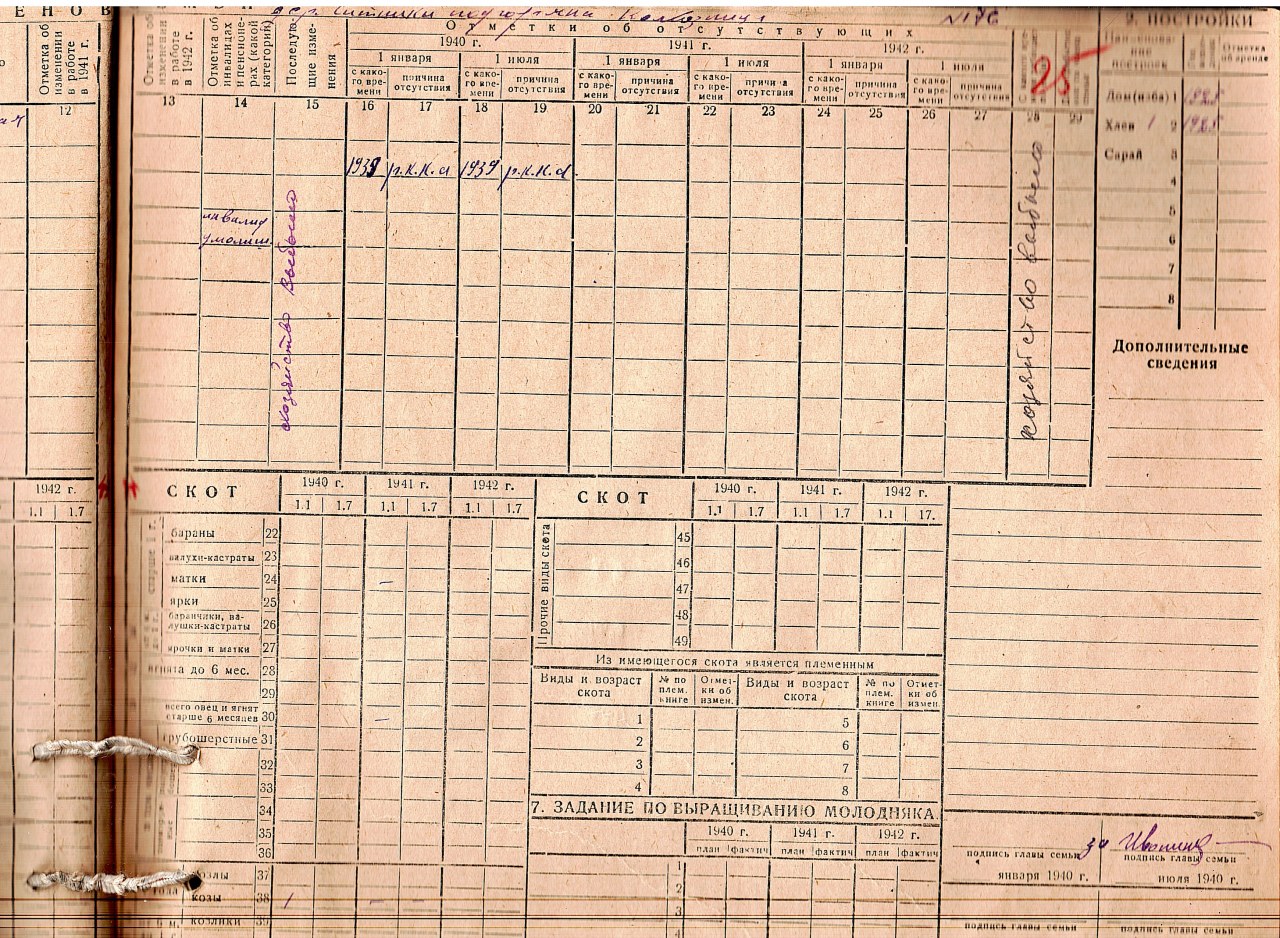 Е Н О В
Отметка об изменении в работе в 1941 г.
12
Отметка об изменении в работе в 1942 г.
Отметка об инвалидах и пенсионерах (какой категории)
Последующие изменения
№176
Отметки об отсутствующих
1940 г. 1941 г. 1942 г.
1 января 1 июля 1 января 1 июля 1 января 1 июля
с какого времени причина отсутствия с какого времени причина отсутствия с какого времени причина отсутствия с какого времени причина отсутствия с какого времени причина отсутствия с какого времени причина отсутствия
13 14 15 16 17 18 19 20 21 22 23 24 25 26 27 28 29
25
1939 р.к.к.а 1939 р.к.к.а
инвалид
хозяйство выбыло
хозяйство выбыло
9. ПОСТРОЙКИ
Наименование построек
Отметка об аренде
Дом (изба) 1 1925
Хлев 1 2 1925
Сарай 3
4
5
6
7
8
Дополнительные
сведения
1942 г.
1.1 1.7
СКОТ
1940 г. 1941 г. 1942 г.
1.1 1.7 1.1 1.7 1.1 1.7
старше 1 г.
бараны 22
валухи-кастраты 23
матки 24 –
ярки 25
баранчики, ва-
лушки-кастраты 26
ярочки и матки 27
ягнята до 6 мес. 28
29
всего овец и ягнят
старше 6 месяцев 30 –
грубошерстные 31
32
33
34
35
36
козлы 37
козы 38 1 – –
козлики 39
СКОТ
1940 г. 1941 г. 1942 г.
1.1 1.7 1.1 1.7 1.1 17.
Прочие виды скота
45
46
47
48
49
Из имеющегося скота является племенным
Виды и возраст скота № по плем. книге Отметки об измен. Виды и возраст скота № по плем. книге Отметки об измен.
1 5
2 6
3 7
4 8
7. ЗАДАНИЕ ПО ВЫРАЩИВАНИЮ МОЛОДНЯКА.
1940 г. 1941 г. 1942 г.
план фактич план фактич план фактич
1
2
3
4
за
подпись главы семьи подпись главы семьи
января 1940 г. июля 1940 г.
подпись главы семьи подпись главы семьи